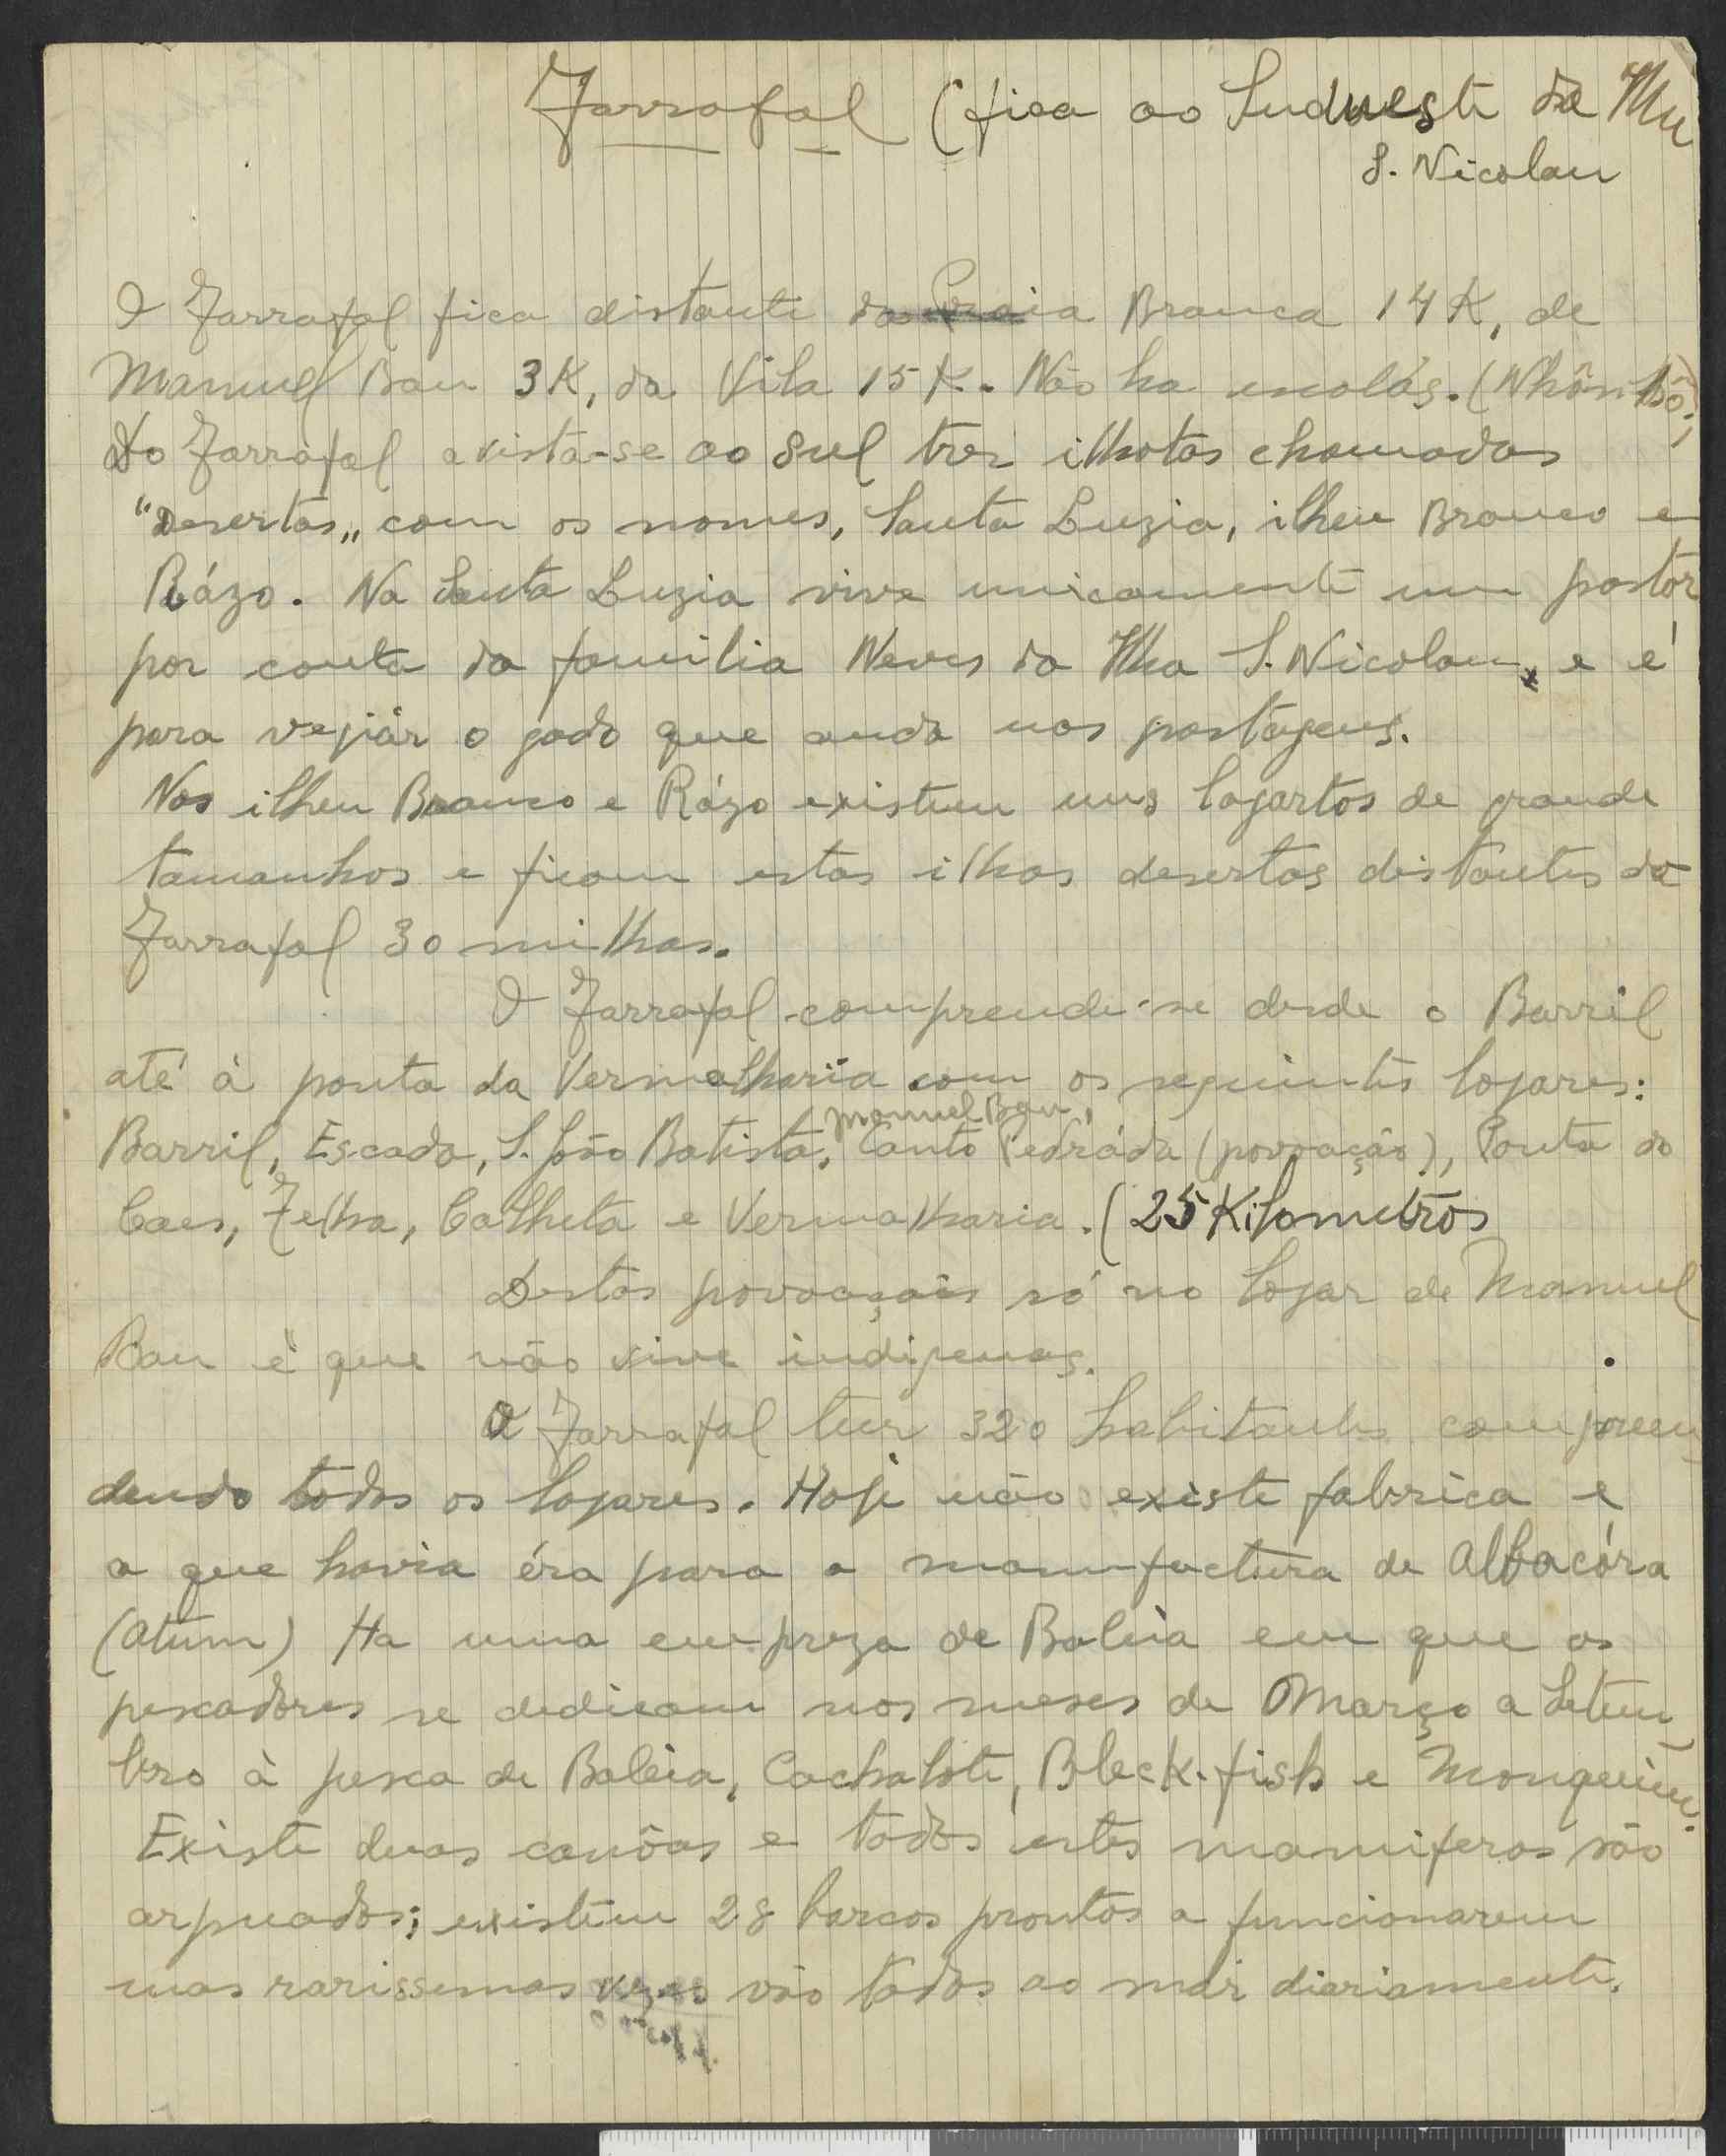 Tarrafal (fica ao Sudueste da
S. Nicolau
O Tarrafal fica distante da Praia Branca 14 K, de
Manuel Bau 3 K, da Vila 15 K. Não ha escolás. (Nhôn Bô;)
Do Tarrafal avista-se ao sul tres ilhotas chamadas
"Desertas„ com os nomes, Santa Luzia, ilheu Branco e
Rázo. Na Santa Luzia vive unicamente um pastor
por conta da familia Neves da Ilha S. Nicolau, e é
para vejiár o gado que anda nas pastagens.
Nos ilheu Branco e Rázo existem uns lagartos de grande
tamanhos e ficam estas ilhas desertas distantes do
Tarrafal 30 milhas.
O Tarrafal comprende-se desde o Barril
até à ponta da Vermalharia com os seguintes logares:
Manuel Bau,
Barril, Escada, S. João Batista, Canto Pedráda (povoação), Ponta do
Caes, Telha, Calheta e Vermalharia. (25 Kilometros
Destas povoaçais só no logar de Manuel
Bau é que não vive indigenas.
O Tarrafal tem 320 habitantes compreen-
dendo todos os logares. Hoje não existe fabrica e
a que havia éra para a manufactura de Albacóra
(Atum) Ha uma empreza de Baleia em que os
pescadores se dedicam nos meses de Março a Setem-
bro à pesca de Baleia, Cachalote, Bleck-fish e Monqueiu.
Existe duas canôas e todos estes mamiferos são
arpuados; existem 28 barcos prontos a funcionarem
mas rarissemas vezes vão todos ao mar diariamente.